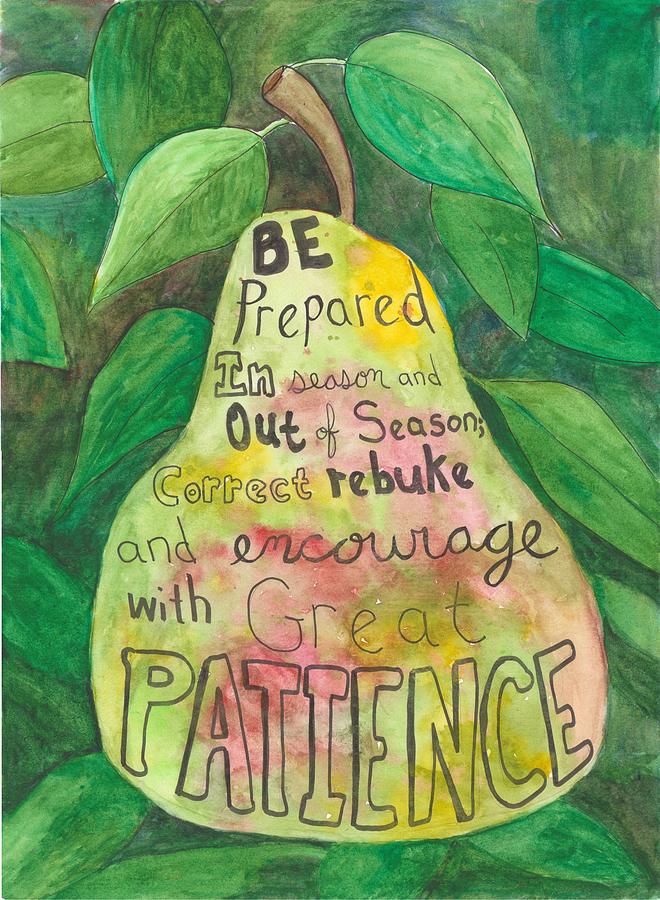 BE
Prepared
In season and
Out of Season;
Correct rebuke
and encourage
with Great
PATIENCE